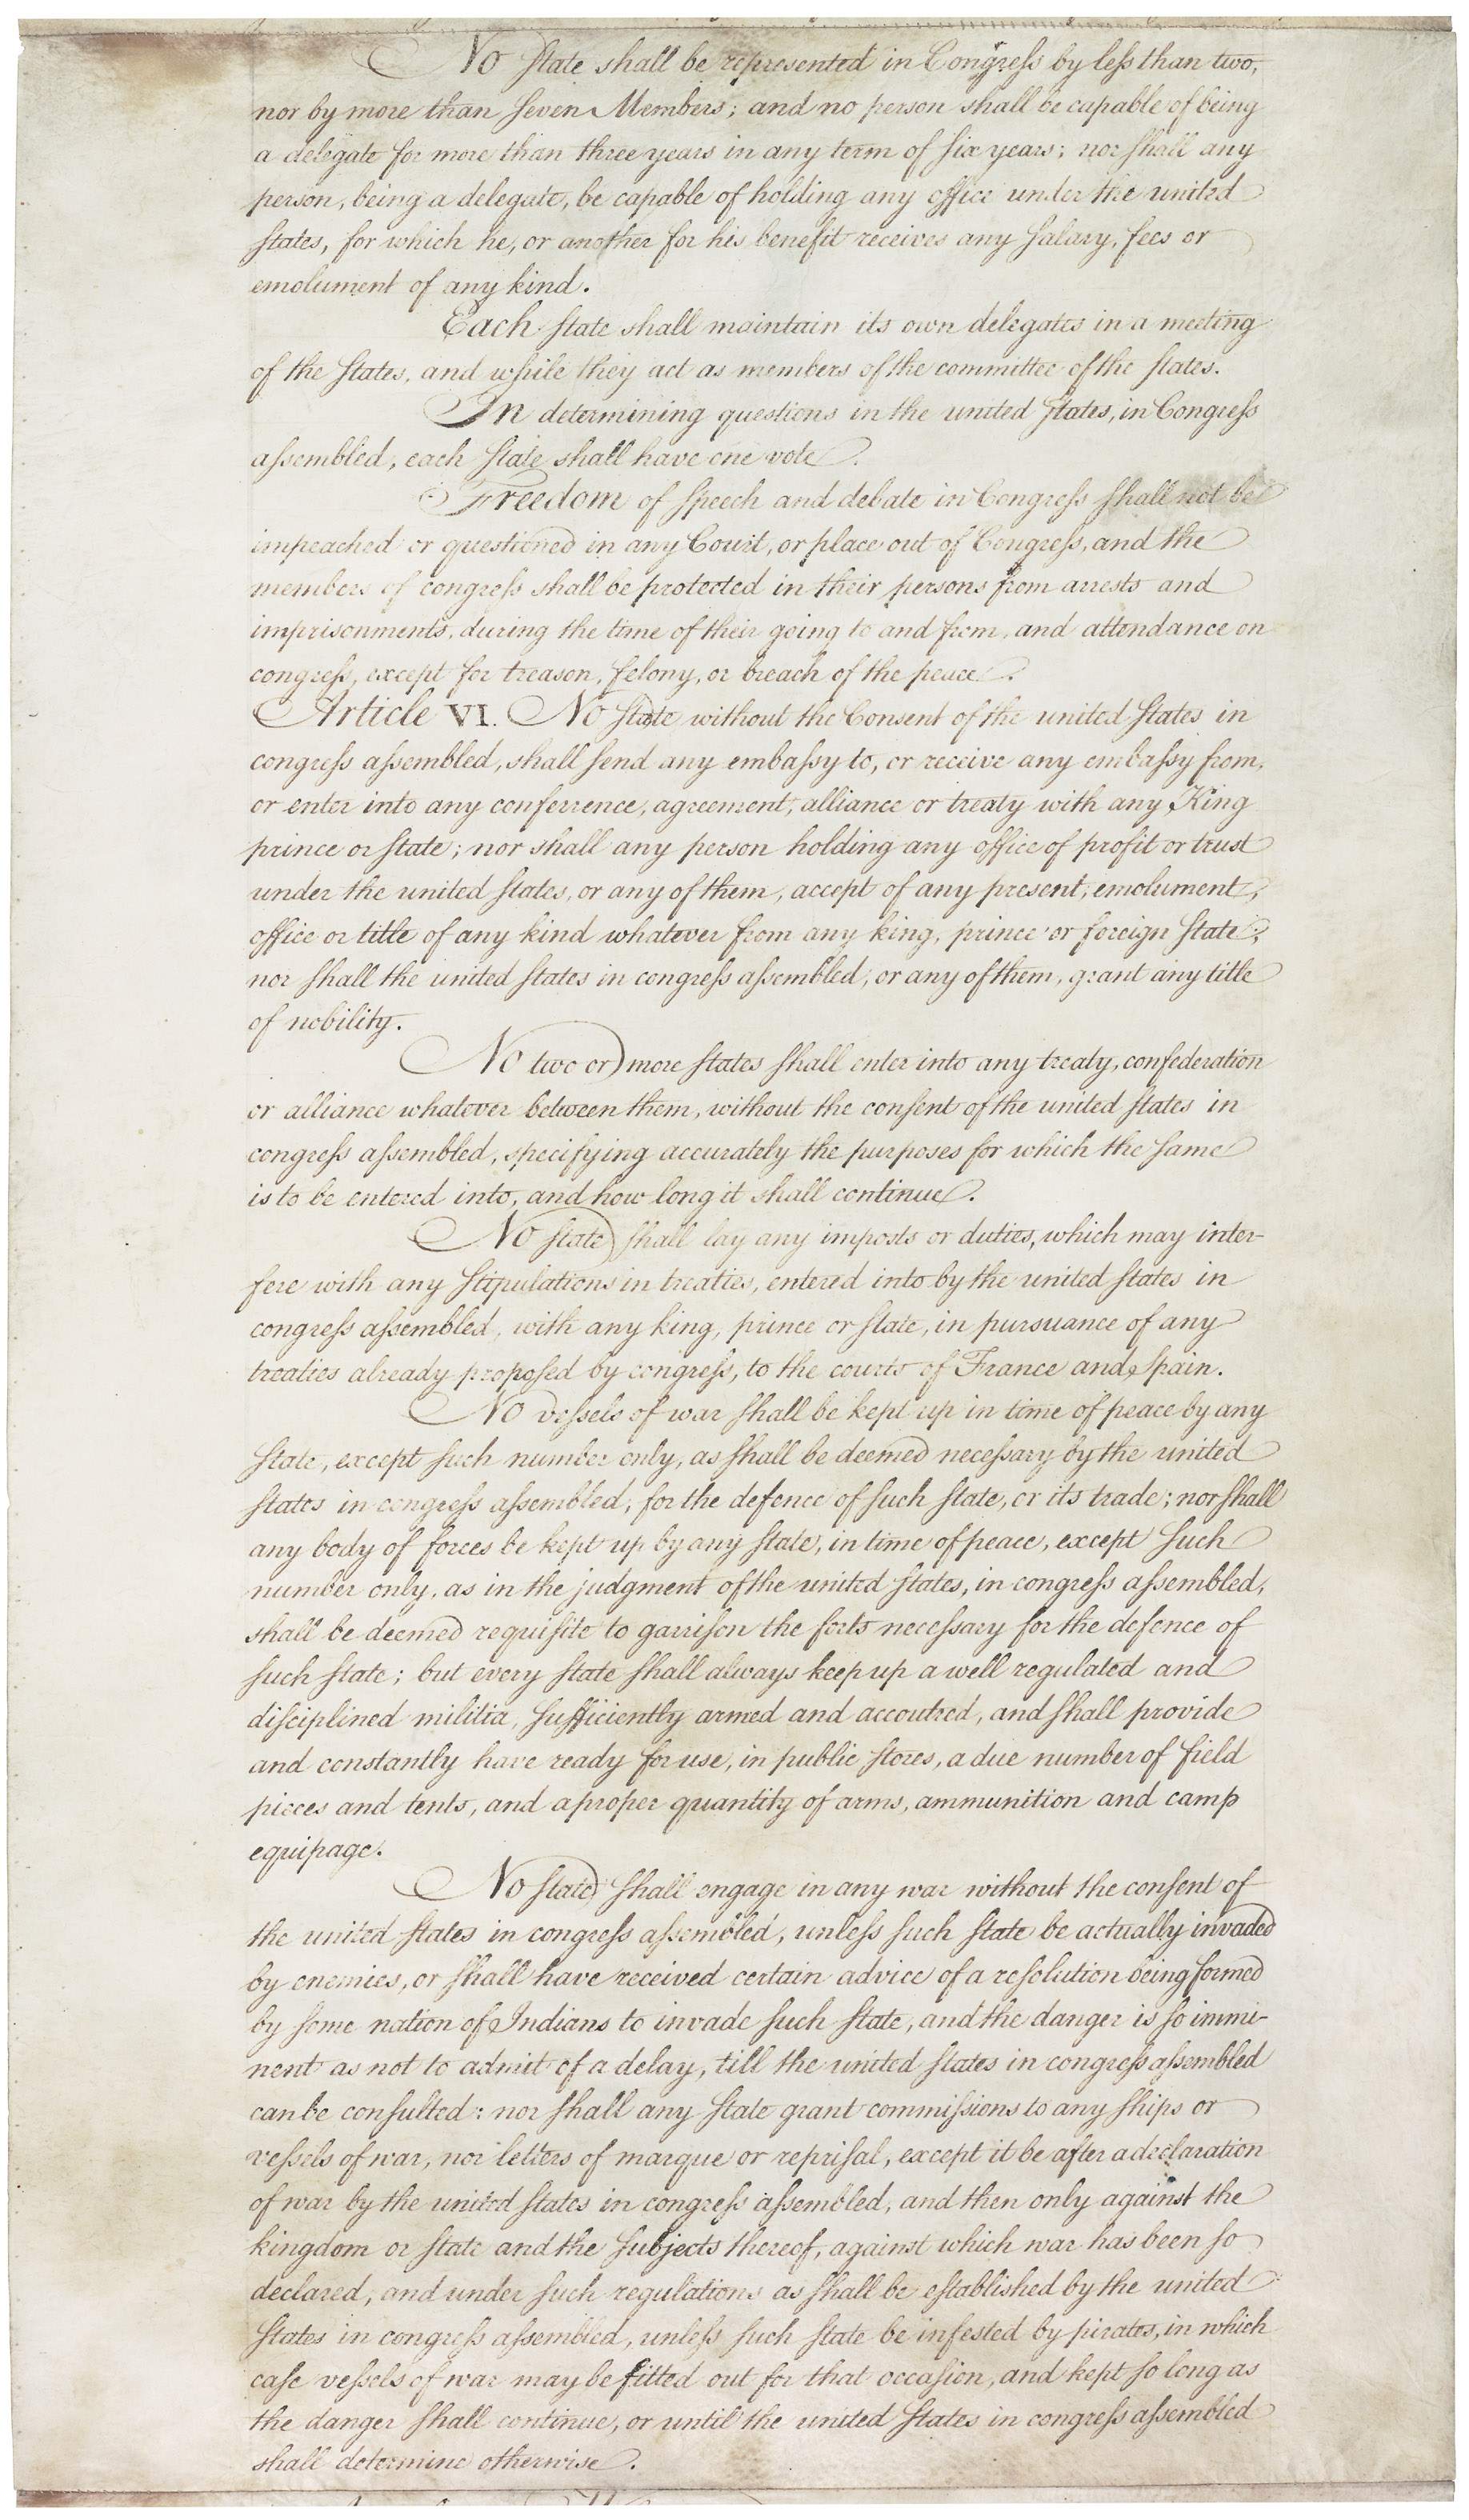 No State shall be represented in Congress by less than two,
nor by more than seven Members; and no person shall be capable of being
a delegate for more than three years in any term of six years; nor shall any
person, being a delegate, be capable of holding any office under the united
states, for which he, or another for his benefit receives any salary, fees or
emolument of any kind.
Each state shall maintain its own delegates in a meeting
of the states, and while they act as members of the committee of the states.
In determining questions in the united states, in Congress
assembled, each state shall have one vote.
Freedom of speech and debate in Congress shall not be
impeached or questioned in any Court, or place out of Congress, and the
members of congress shall be protected in their persons from arrests and
imprisonments, during the time of their going to and from, and attendance on
congress, except for treason, felony, or breach of the peace.
Article VI. No state without the Consent of the united states in
congress assembled, shall send any embassy to, or receive any embassy from,
or enter into any conferrence, agreement, alliance or treaty with any King
prince or state; nor shall any person holding any office of profit or trust
under the united states, or any of them, accept of any present, emolument,
office or title of any kind whatever from any king, prince or foreign state;
nor shall the united states in congress assembled, or any of them, grant any title
of nobility.
No two or more states shall enter into any treaty, confederation
or alliance whatever between them, without the consent of the united states in
congress assembled, specifying accurately the purposes for which the same
is to be entered into, and how long it shall continue.
No state shall lay any imposts or duties, which may inter-
fere with any stipulations in treaties, entered into by the united states in
congress assembled, with any king, prince or state, in pursuance of any
treaties already proposed by congress, to the courts of France and Spain.
No vessels of war shall be kept up in time of peace by any
state, except such number only, as shall be deemed necessary by the united
states in congress assembled, for the defence of such state, or its trade; nor shall
any body of forces be kept up by any state, in time of peace, except such
number only, as in the judgment of the united states, in congress assembled,
shall be deemed requisite to garrison the forts necessary for the defence of
such state; but every state shall always keep up a well regulated and
disciplined militia, sufficiently armed and accoutred, and shall provide
and constantly have ready for use, in public stores, a due number of field
pieces and tents, and a proper quantity of arms, ammunition and camp
equipage.
No state shall engage in any war without the consent of
the united states in congress assembled, unless such state be actually invaded
by enemies, or shall have received certain advice of a resolution being formed
by some nation of Indians to invade such state, and the danger is so immi-
nent as not to admit of a delay, till the united states in congress assembled
can be consulted: nor shall any state grant commissions to any ships or
vessels of war, nor letters of marque or reprisal, except it be after a declaration
of war by the united states in congress assembled, and then only against the
kingdom or state and the subjects thereof, against which war has been so
declared, and under such regulations as shall be established by the united
states in congress assembled, unless such state be infested by pirates, in which
case vessels of war may be fitted out for that occasion, and kept so long as
the danger shall continue, or until the united states in congress assembled
shall determine otherwise.